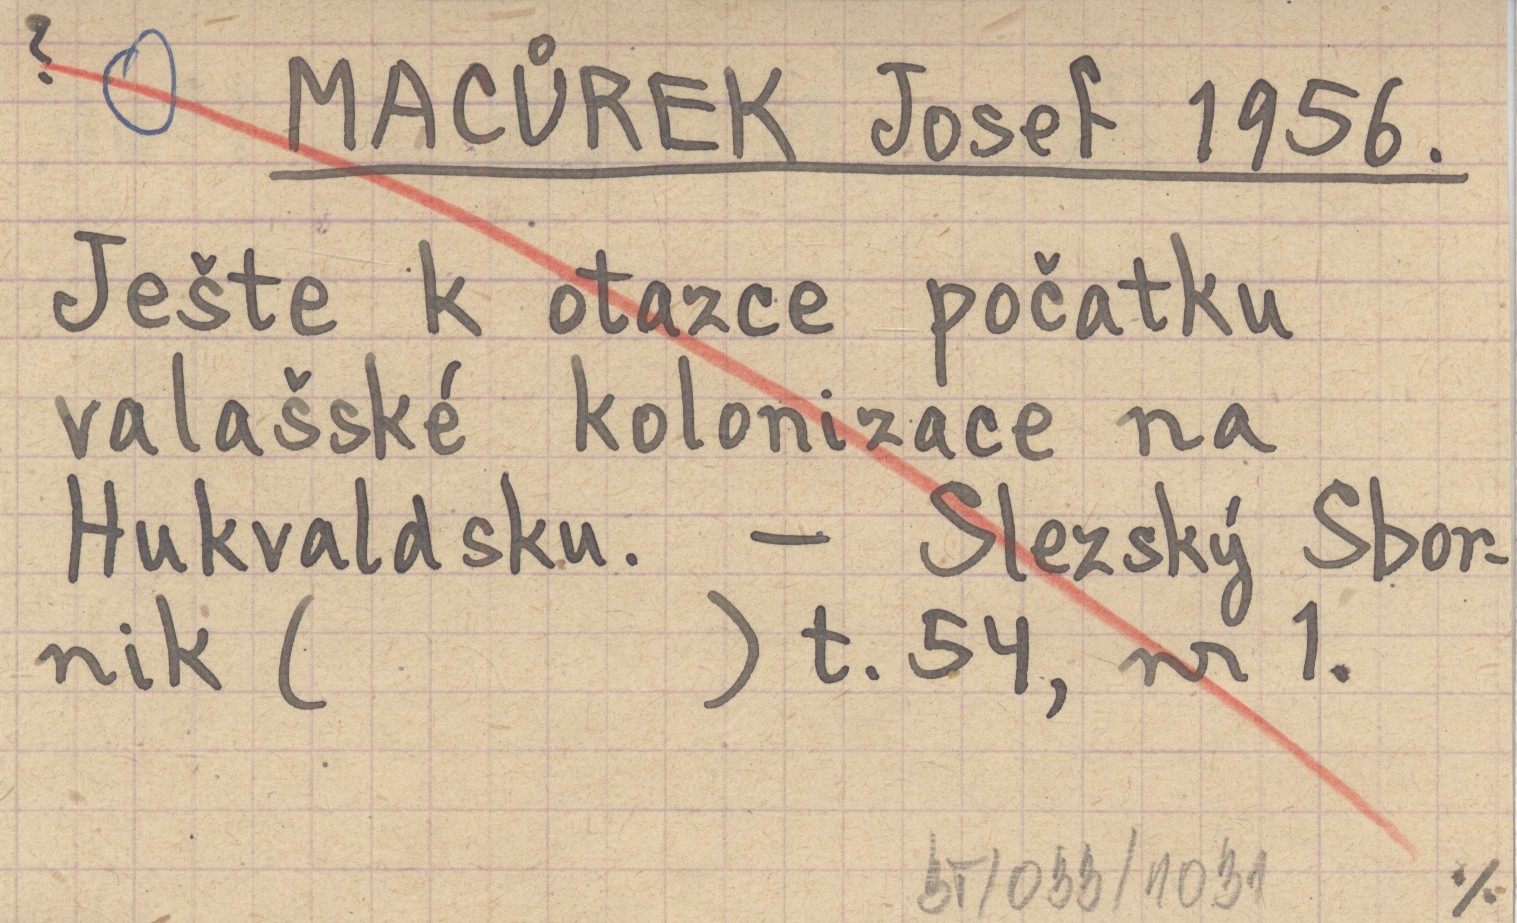 ?
MACŮREK Josef 1956.
Ješte k otazce počatku
valašské kolonizace na
Hukvaldsku. — Slezský Sbor-
nik ( ) t. 54, nr 1.
/033/1031
·/.